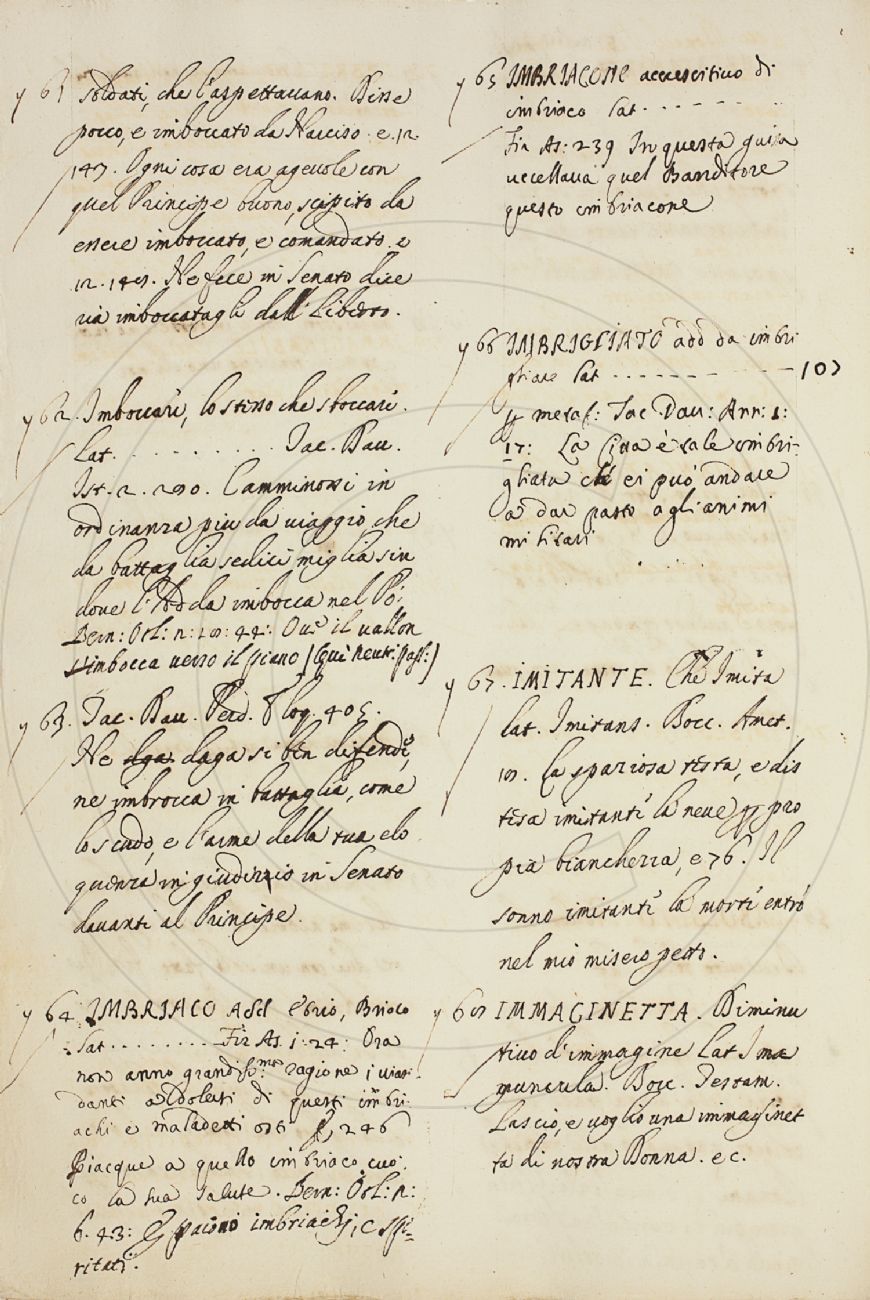 y 61 soldati, che l'aspettauano. Disse
poco, e imboccato da Narciso. e. 12.
147. Ogni cosa era ageuole con
quel Principe buono, scipito da
essere imboccato, e comandato. e
12. 149. Ne fece in Senato dice
ria imboccatagli dall' Liberto.
y 62. Imboccare, lo stesso che sboccare.
Lat. . . . . . . . . . . Tac. Dau.
Ist. 2. 290. Camminossi in
ordinanza piu da uiaggio che
da battaglia sedici miglia sin
doue l'Adda imbocca nel Po.
Bern: Orl: 2: 10: 44: Oue il uallon
s'imbocca uerso il piano (Qui neutr: pass:)
y 63. Tac. Dau. Perd. Eloq. 405.
Ne daga si ben difende,
ne imbrocca in battaglia, come
lo scudo, e l'arme della tua elo
quenza in giudizio in Senato
dauanti al Principe.
y 64 IMBRIACO Add Ebrio, Briaco
Lat . . . . . . . . . Fir As. 1: 24: Ora
non anno grandiss.ma ragione i uian
danti a dolersi di questi imbri
achi e maladetti osti, 246
Piacque a quello imbriaco cuo
co la sua salute. Bern: Orl: 2:
6. 43: E paiono imbriachi, e spi=
ritati.
y 65 IMBRIACONE accrescitiuo di
imbriaco Lat. . . . . . . . .
Fir As: 239 In questa guisa
uccellaua quel Banditore
questo imbriacone
y 66 IMBRIGLIATO add da imbri
gliare Lat . . . . . . . . . . 107
p metaf: Tac Dau: Ann: 1:
17: La Citta è sale imbri-
gliata chi ci può andare
a dar pasto agli animi
militari
y 67. IMITANTE. Che Imita
lat. Imitans. Bocc. Amet.
19. La spaziosa testa, e dis
tesa imitante la neue p pro
pia bianchezza, e 76. Il
sonno imitante la morte entrò
nel mio misero petto.
y 68 IMMAGINETTA. Diminu
tiuo d'immagine Lat Ima
guncula. Bocc. Testam.
Lascio, e uoglio una immaginet
ta di nostra Donna. ec.